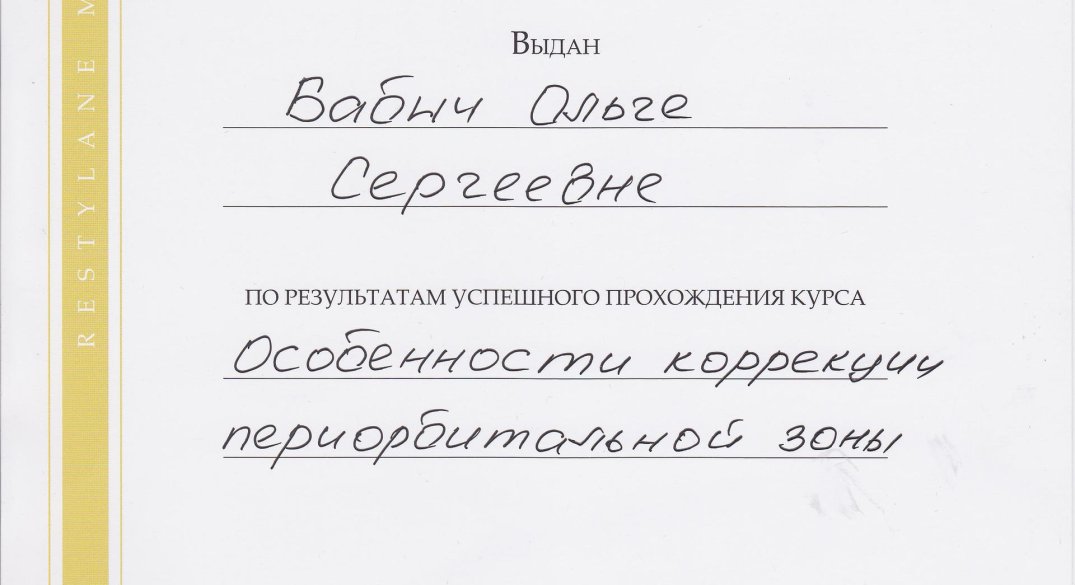 RESTYLANE M
Выдан
Бабыч Ольге
Сергеевне
по результатам успешного прохождения курса
Особенности коррекции
периорбитальной зоны